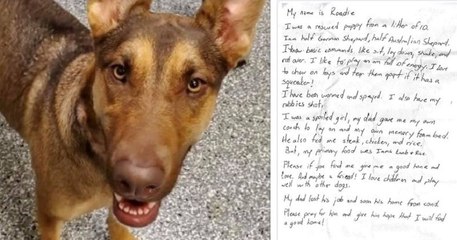 My name is Roadie
I was a rescued puppy from a litter of 10.
I'm a half German Shepard, half Australian Shepard.
I know basic commands like sit, lay down, shake, and
roll over. I like to play im full of energy. I love
to chew on toys and tear them apart if it has a
squeaker!
I have been wormed and spayed. I also have my
rabbies shot.
I was a spoiled girl, my dad gave me my own
couch to lay on and my own memory foam bed.
He also fed me steak, chicken, and rice.
But, my primary food was Iams Lamb & Rice
Please if you find me give me a good home and
love. And maybe a friend! I love children and play
well with other dogs.
My dad lost his job and soon his home from covid.
Please pray for him and give him hope that I will find
a good home!